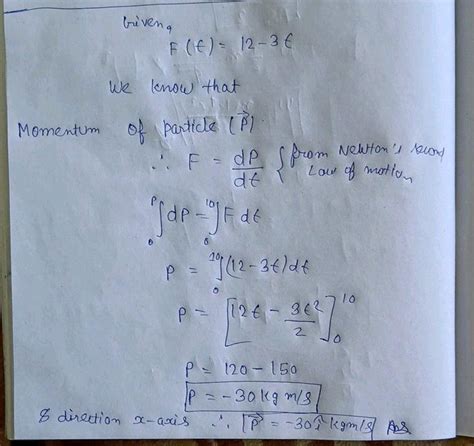 Given,
F(t) = 12-3t
We know that
Momentum of particle (P⃗)
∴ F = dP/dt {from Newton's second Law of motion
∫₀ᴾ dP = ∫₀¹⁰ F dt
P = ∫₀¹⁰ (12-3t)dt
P = [12t - 3t²/2]₀¹⁰
P = 120 - 150
P = -30 kg m/s
& direction x-axis ∴ P⃗ = -30î kgm/s Ans